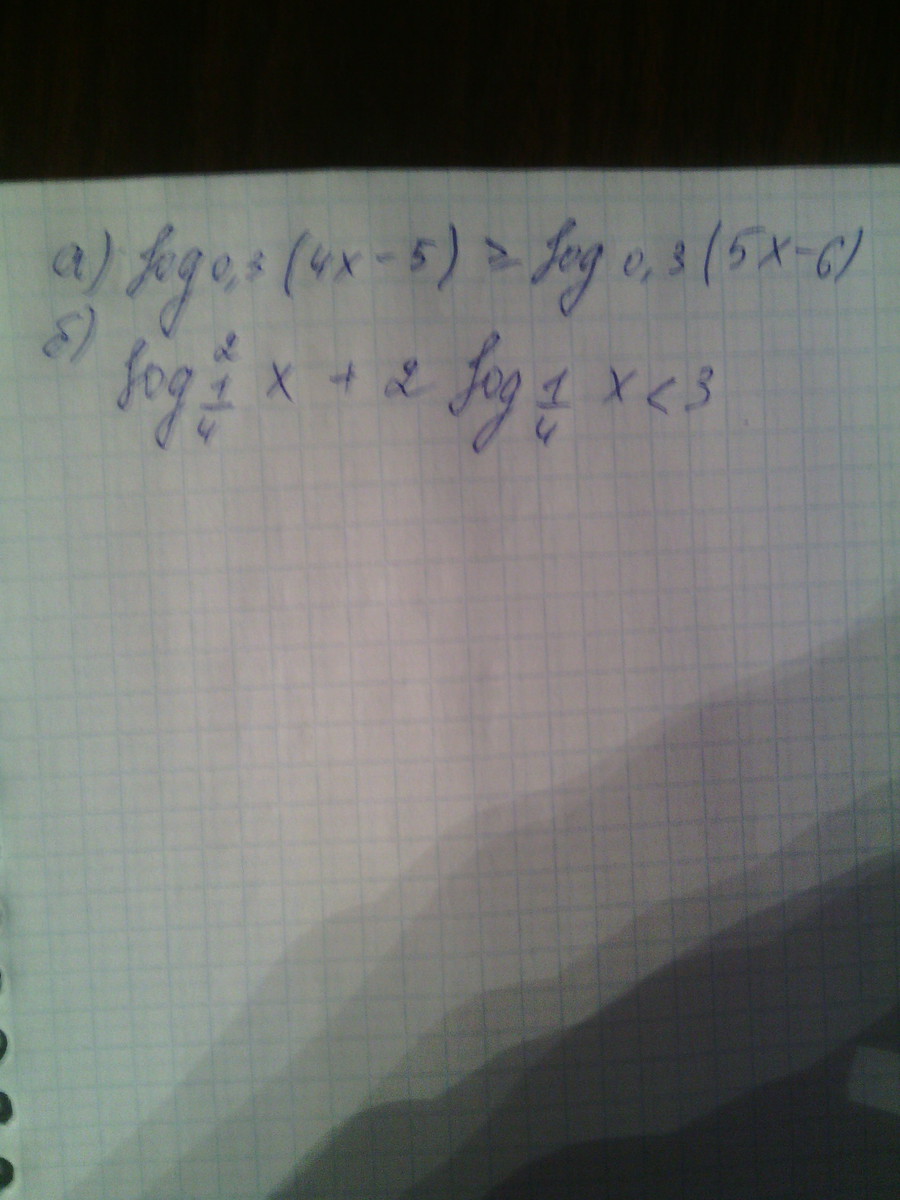 а) log 0,3 (4x-5) ≥ log 0,3 (5x-6)
б) log²_{1/4} x + 2 log_{1/4} x < 3